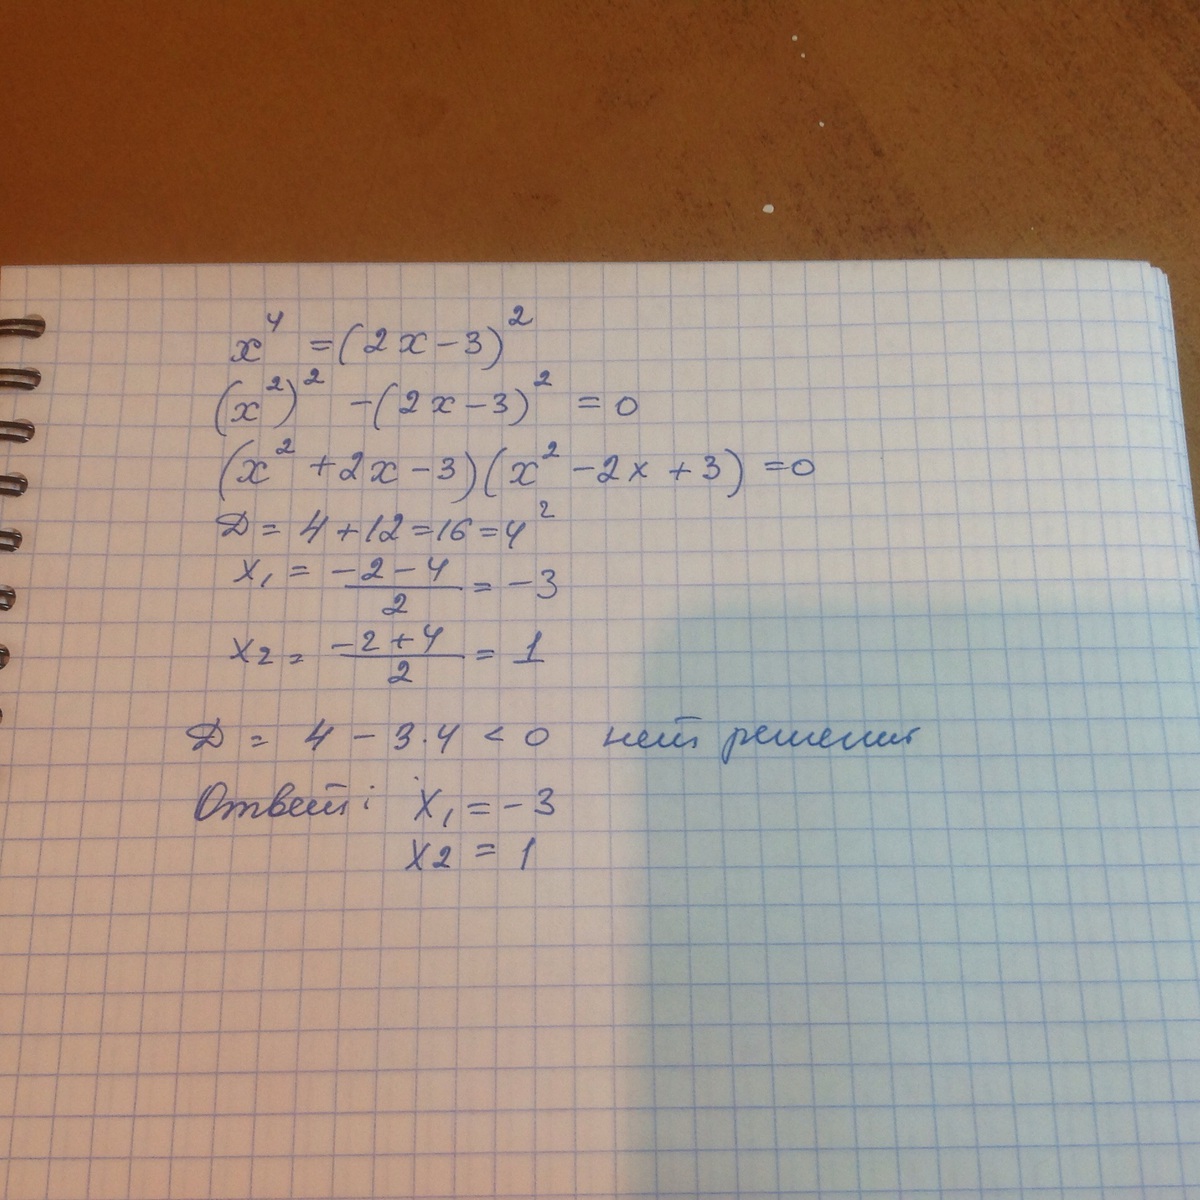 x⁴ = (2x-3)²
(x²)² - (2x-3)² = 0
(x² + 2x - 3)(x² - 2x + 3) = 0
Д = 4 + 12 = 16 = 4²
x₁ = (-2-4)/2 = -3
x₂ = (-2+4)/2 = 1
Д = 4 - 3·4 < 0 нет решения
Ответ: x₁ = -3
x₂ = 1